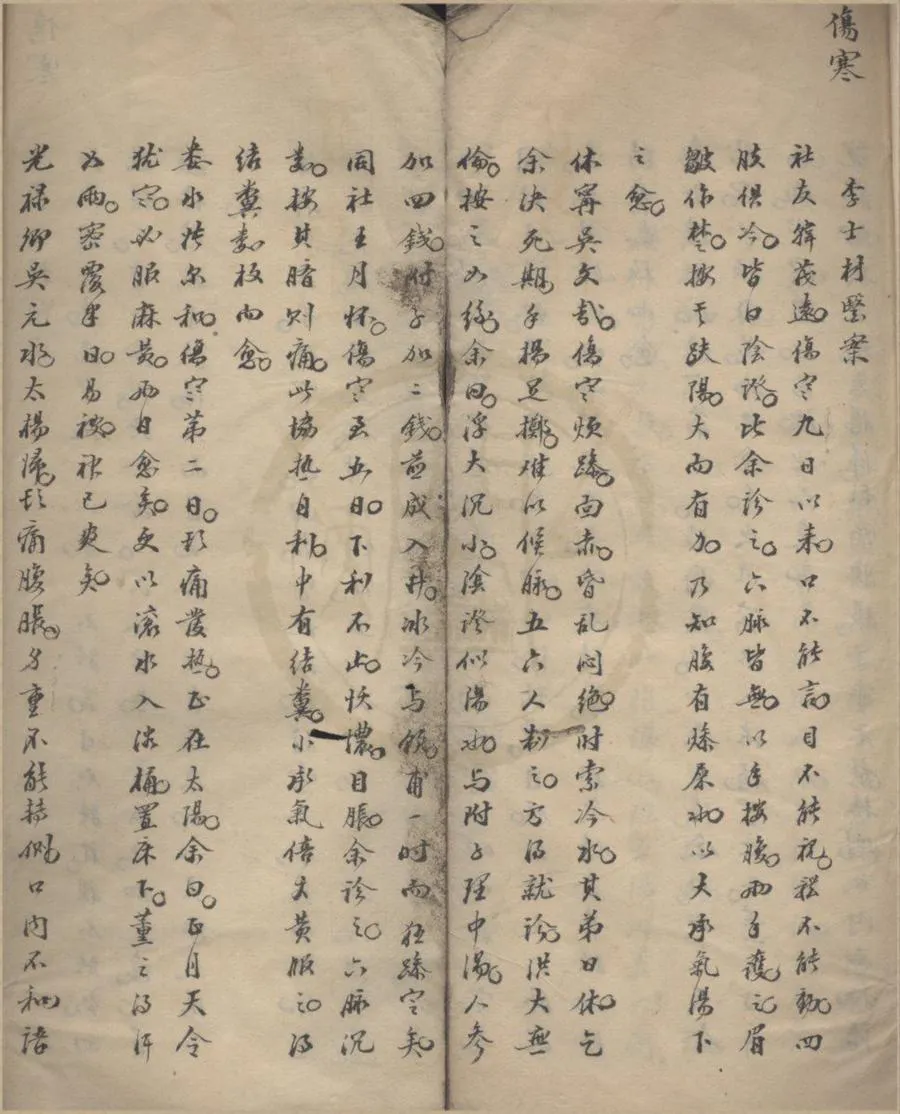 傷寒
李士材醫案
社友韓茂遠。傷寒九日以來。口不能言。目不能視。體不能動。四
肢俱冷。皆曰陰證。比余診之。六脈皆無。以手按腹。兩手護之。眉
皺作楚。按其趺陽。大而有力。乃知腹有燥屎也。以大承氣湯下
之愈。
休寧吳文哉。傷寒煩躁。面赤。昏乱悶絶。时索冷水。其弟日休乞
余决死期。手揚足擲。难以候脉。五六人制之。方得就診。洪大無
倫。按之如絲。余曰。浮大沉小。陰證似陽也。与附子理中湯。人參
加四錢。附子加二錢。煎成入井。冰冷与飲。甫一时而狂躁定矣。
同社王月怀。傷寒至五日。下利不止。懊憹。目脹。余診之。六脉沉
数。按其臍則痛。此協热自利。中有结糞。小承氣倍大黄服之。得
结糞数枚而愈。
娄水张尔和。傷寒第二日。头痛發热。正在太陽。余曰。正月天令
犹寒。必服麻黄。两日愈矣。更以滚水入浴桶。置床下。薰之得汗
如雨。密覆半日。易被。神已爽矣。
光祿卿吳元水。太楊歸。头痛腹脹。身重不能转側。口內不和。語